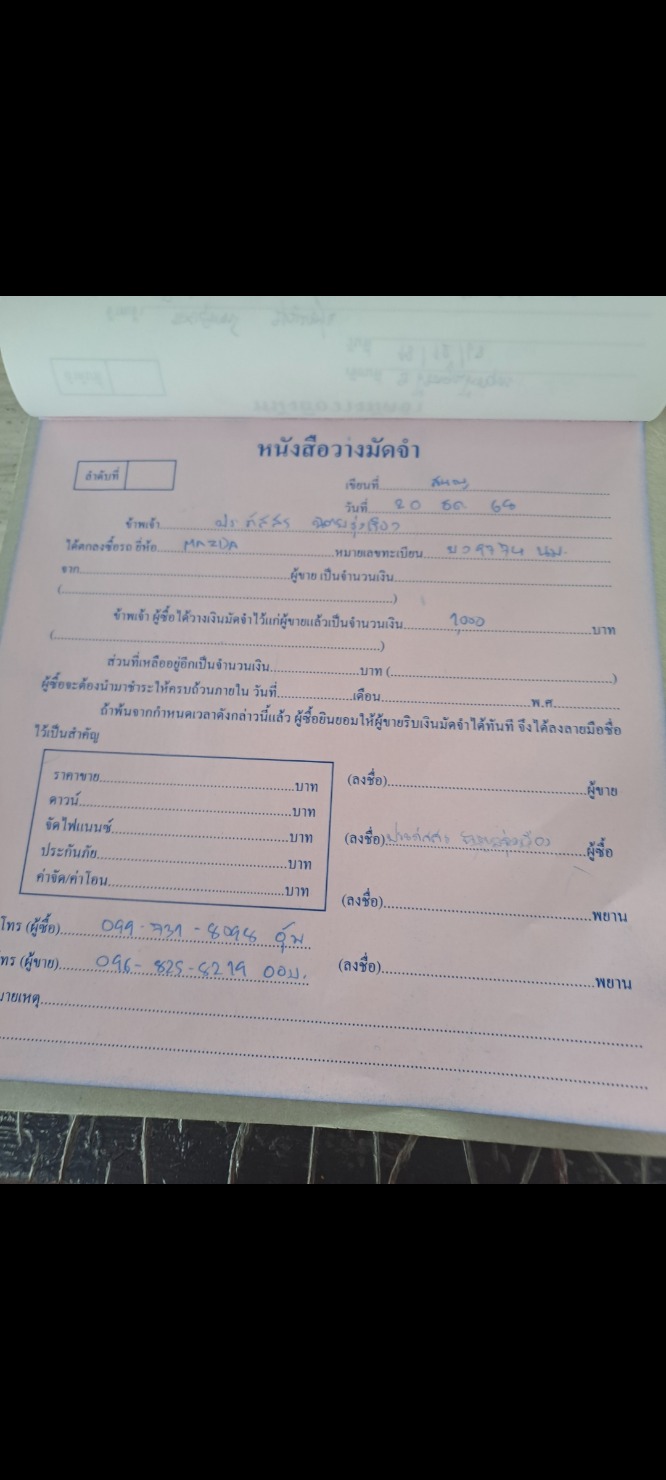 หนังสือวางมัดจำ
ลำดับที่
เขียนที่
วันที่ 20 ธค 68
ข้าพเจ้า
ได้ตกลงซื้อรถ ยี่ห้อ MAZDA หมายเลขทะเบียน นม.
จาก ผู้ขาย เป็นจำนวนเงิน
( )
ข้าพเจ้า ผู้ซื้อได้วางเงินมัดจำไว้แก่ผู้ขายแล้วเป็นจำนวนเงิน 1,000 บาท
( )
ส่วนที่เหลืออยู่อีกเป็นจำนวนเงิน บาท ( )
ผู้ซื้อจะต้องนำมาชำระให้ครบถ้วนภายใน วันที่ เดือน พ.ศ.
ถ้าพ้นจากกำหนดเวลาดังกล่าวนี้แล้ว ผู้ซื้อยินยอมให้ผู้ขายริบเงินมัดจำได้ทันที จึงได้ลงลายมือชื่อ
ไว้เป็นสำคัญ
ราคาขาย บาท
ดาวน์ บาท
จัดไฟแนนซ์ บาท
ประกันภัย บาท
ค่าจัด/ค่าโอน บาท
(ลงชื่อ) ผู้ขาย
(ลงชื่อ) ผู้ซื้อ
(ลงชื่อ) พยาน
(ลงชื่อ) พยาน
โทร (ผู้ซื้อ) 099-731-8098
ทร (ผู้ขาย) 096-825-8219
มายเหตุ